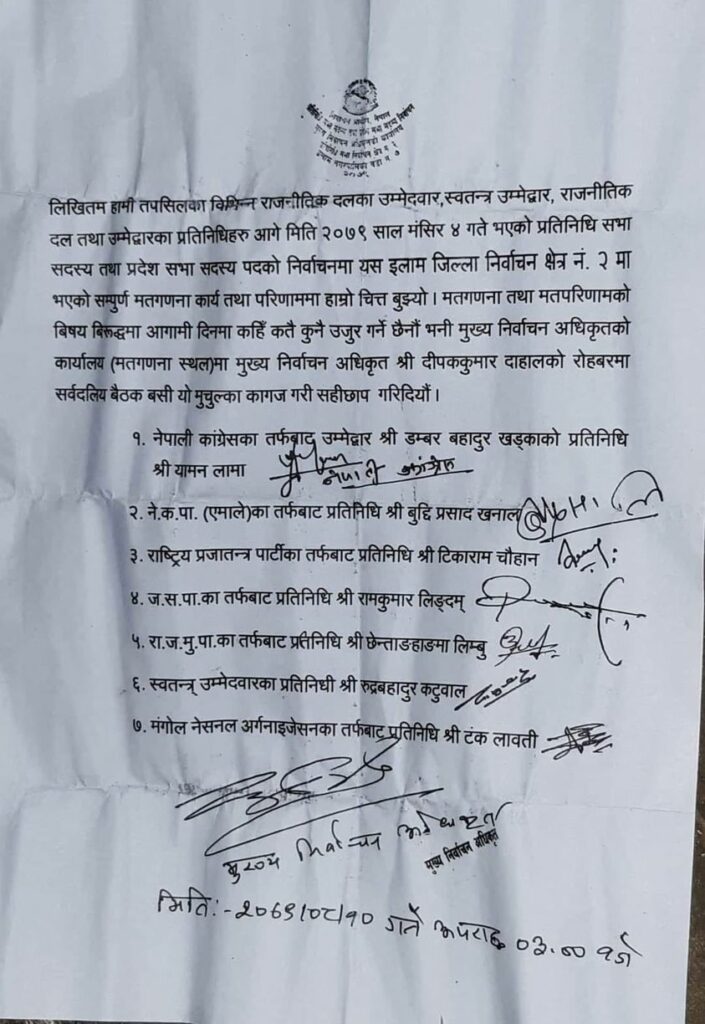 निर्वाचन आयोग, नेपाल
लिखितम हामी तपसिलका विभिन्न राजनीतिक दलका उम्मेदवार,स्वतन्त्र उम्मेद्वार, राजनीतिक
दल तथा उम्मेद्वारका प्रतिनिधिहरु आगे मिति २०७९ साल मंसिर ४ गते भएको प्रतिनिधि सभा
सदस्य तथा प्रदेश सभा सदस्य पदको निर्वाचनमा यस इलाम जिल्ला निर्वाचन क्षेत्र नं. २ मा
भएको सम्पुर्ण मतगणना कार्य तथा परिणाममा हाम्रो चित्त बुझ्यो । मतगणना तथा मतपरिणामको
बिषय बिरुद्धमा आगामी दिनमा कहिँ कतै कुनै उजुर गर्ने छैनौं भनी मुख्य निर्वाचन अधिकृतको
कार्यालय (मतगणना स्थल)मा मुख्य निर्वाचन अधिकृत श्री दीपककुमार दाहालको रोहबरमा
सर्वदलिय बैठक बसी यो मुचुल्का कागज गरी सहीछाप गरिदियौं ।
१. नेपाली कांग्रेसका तर्फबाट उम्मेद्वार श्री डम्बर बहादुर खड्काको प्रतिनिधि
श्री यामन लामा नेपाली कांग्रेस
२. ने.क.पा. (एमाले)का तर्फबाट प्रतिनिधि श्री बुद्दि प्रसाद खनाल
३. राष्ट्रिय प्रजातन्त्र पार्टीका तर्फबाट प्रतिनिधि श्री टिकाराम चौहान
४. ज.स.पा.का तर्फबाट प्रतिनिधि श्री रामकुमार लिङ्दम्
५. रा.ज.मु.पा.का तर्फबाट प्रतिनिधि श्री छेन्ताङहाङमा लिम्बु
६. स्वतन्त्र् उम्मेदवारका प्रतिनिधी श्री रुद्रबहादुर कटुवाल
७. मंगोल नेसनल अर्गनाइजेसनका तर्फबाट प्रतिनिधि श्री टंक लावती
मुख्य निर्वाचन अधिकृत
मुख्य निर्वाचन अधिकृत
मिति:-२०७९/०८/१० गते अपराह्न ०३.०० बजे